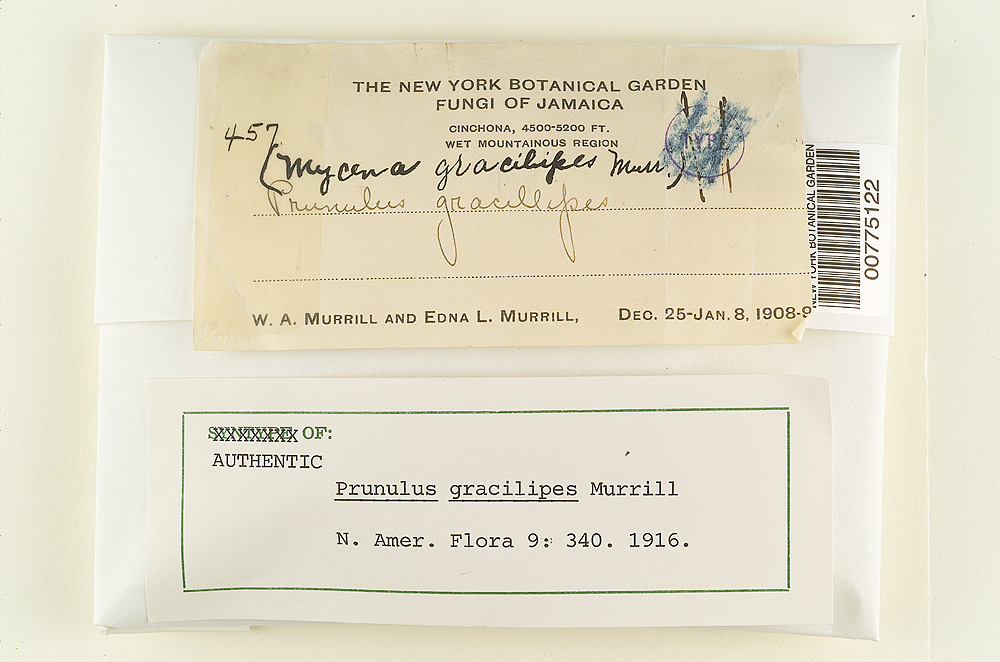 THE NEW YORK BOTANICAL GARDEN
FUNGI OF JAMAICA
CINCHONA, 4500-5200 FT.
WET MOUNTAINOUS REGION
457
TYPE
(Mycena gracilipes Murr.)
Prunulus gracillipes
W. A. MURRILL AND EDNA L. MURRILL, DEC. 25-JAN. 8, 1908-9
NEW YORK BOTANICAL GARDEN
00775122
OF:
AUTHENTIC
Prunulus gracilipes Murrill
N. Amer. Flora 9: 340. 1916.